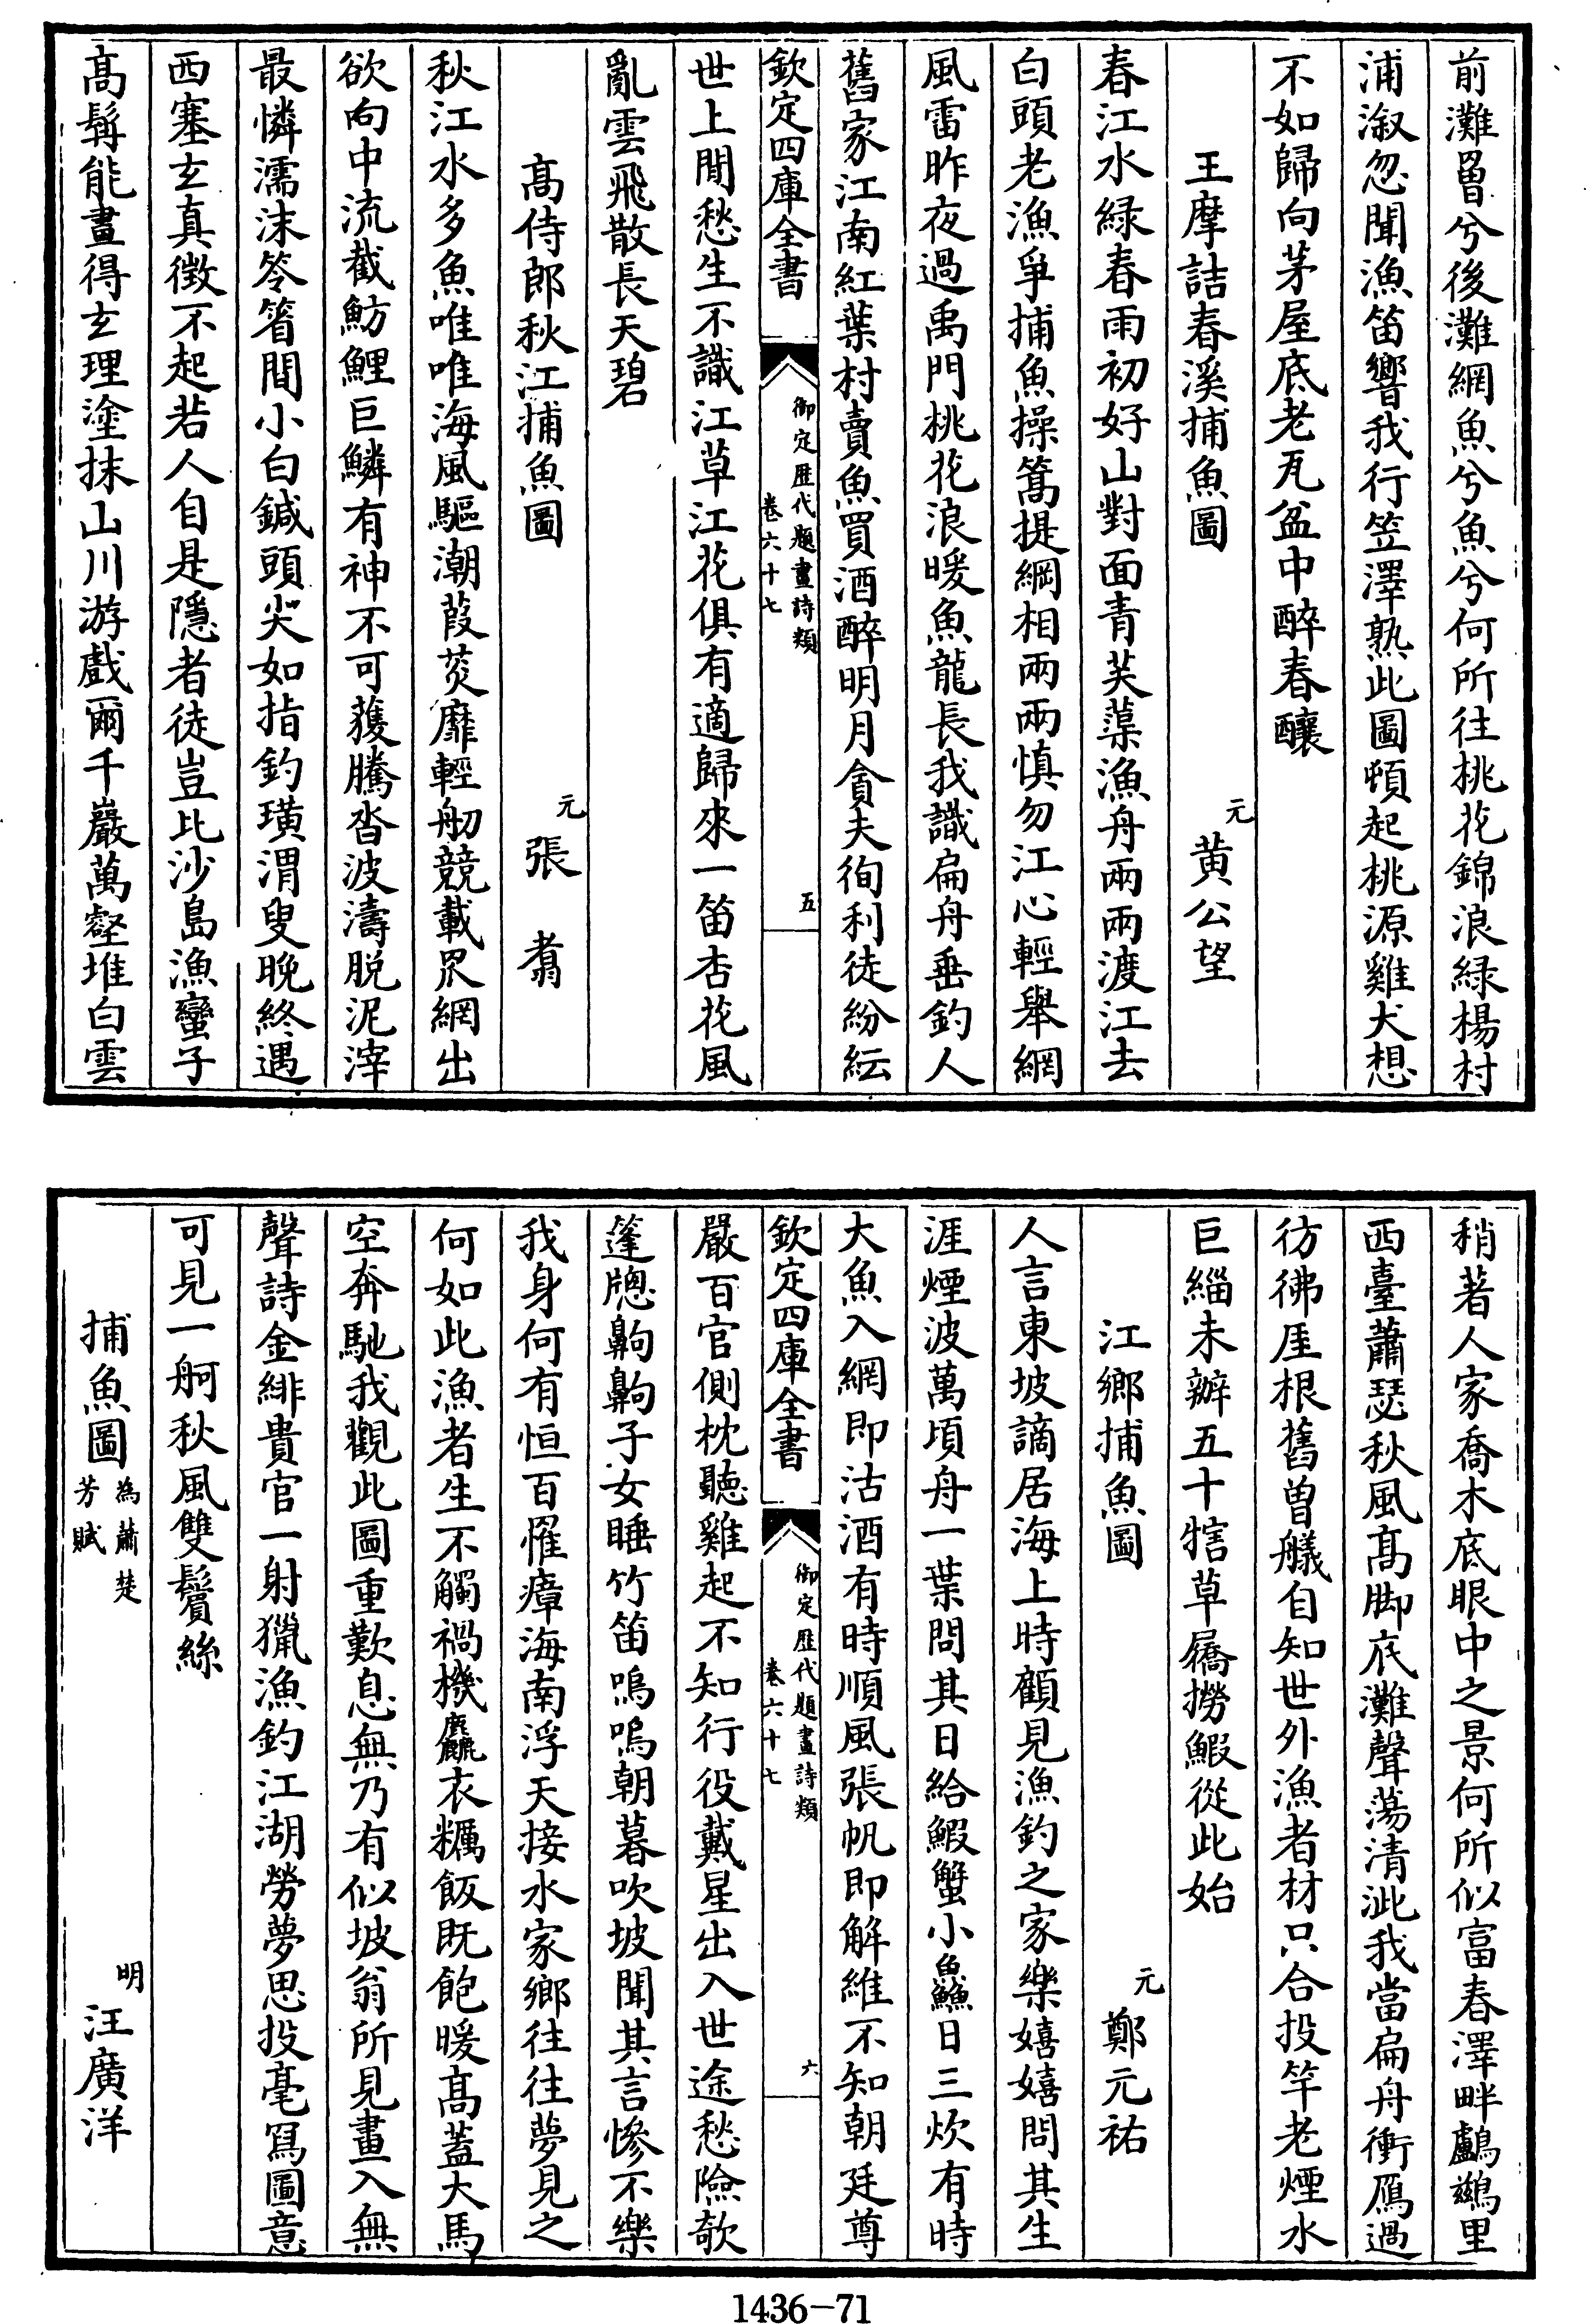 前灘罾兮後灘網魚兮魚兮何所往桃花錦浪緑楊村
浦溆忽聞漁笛響我行笠澤熟此圖頓起桃源雞犬想
不如歸向茅屋底老瓦盆中醉春釀
王摩詰春溪捕魚圖 元 黄公望
春江水緑春雨初好山對面青芙蕖漁舟兩兩渡江去
白頭老漁爭捕魚操篙提網相兩兩慎勿江心輕舉網
風雷昨夜過禹門桃花浪暖魚龍長我識扁舟垂釣人
舊家江南紅葉村賣魚買酒醉明月貪夫徇利徒紛紜
欽定四庫全書 御定歴代題畫詩類 卷六十七 五
世上閒愁生不識江草江花俱有適歸來一笛杏花風
亂雲飛散長天碧
髙侍郎秋江捕魚圖 元 張翥
秋江水多魚唯唯海風驅潮葭菼靡輕舠競載眾網出
欲向中流截魴鯉巨鱗有神不可獲騰沓波濤脱泥滓
最憐濡沫笭箵間小白鍼頭尖如指釣璜渭叟晚終遇
西塞玄真徴不起若人自是隱者徒豈比沙島漁蠻子
髙髯能畫得玄理塗抹山川游戲爾千巖萬壑堆白雲
稍著人家喬木底眼中之景何所似富春澤畔鸕鷀里
西臺蕭瑟秋風髙脚底灘聲蕩清泚我當扁舟衝鴈過
彷彿厓根舊曾艤自知世外漁者材只合投竿老煙水
巨緇未辦五十犗草屩撈鰕從此始
江鄉捕魚圖 元 鄭元祐
人言東坡謫居海上時顧見漁釣之家樂嬉嬉問其生
涯煙波萬頃舟一葉問其日給鰕蟹小鱻日三炊有時
大魚入網即沽酒有時順風張帆即解維不知朝廷尊
欽定四庫全書 御定歴代題畫詩類 卷六十七 六
嚴百官側枕聽雞起不知行役戴星出入世途愁險欹
篷牕齁齁子女睡竹笛嗚嗚朝暮吹坡聞其言慘不樂
我身何有恒百罹瘴海南浮天接水家鄉往往夢見之
何如此漁者生不觸禍機麤衣糲飯既飽暖髙蓋大馬
空奔馳我觀此圖重歎息無乃有似坡翁所見畫入無
聲詩金緋貴官一射獵漁釣江湖勞夢思投毫寫圖意
可見一舸秋風雙鬢絲
捕魚圖 為蕭楚芳賦 明 汪廣洋
1436-71